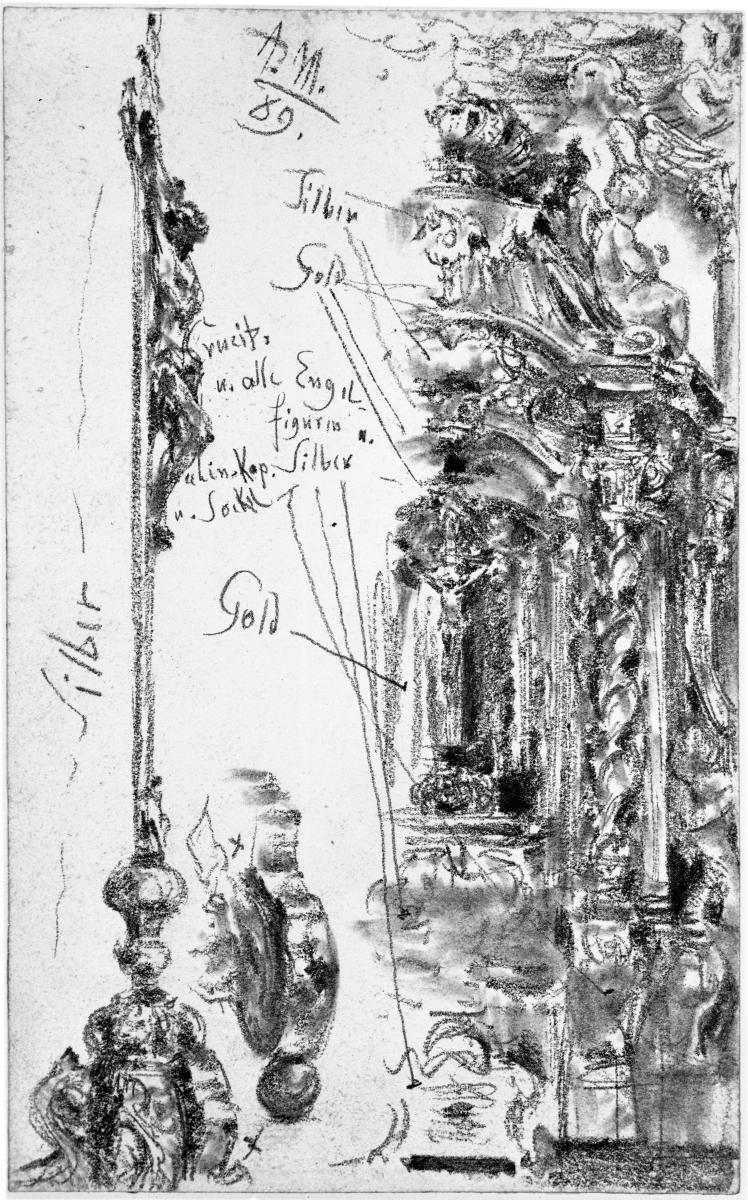 A. M.
89.
Silber
Gold
Crucif.
u. alle Engel
figuren u.
Silber
u. Sockel
Gold
Silber